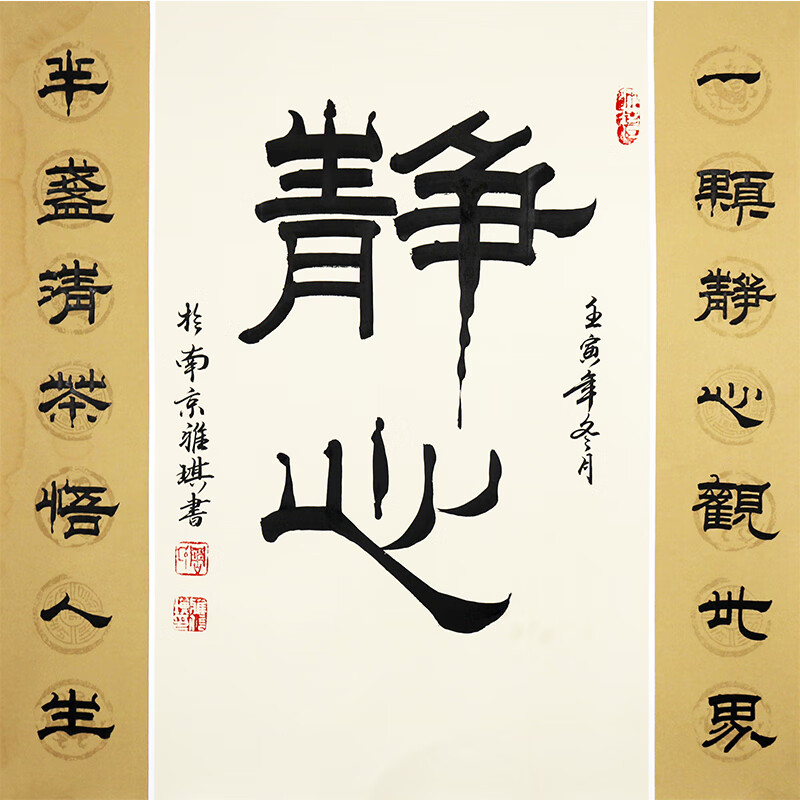 一顆靜心觀世界
壬寅年冬月
靜心
於南京雅琪書
半盞清茶悟人生